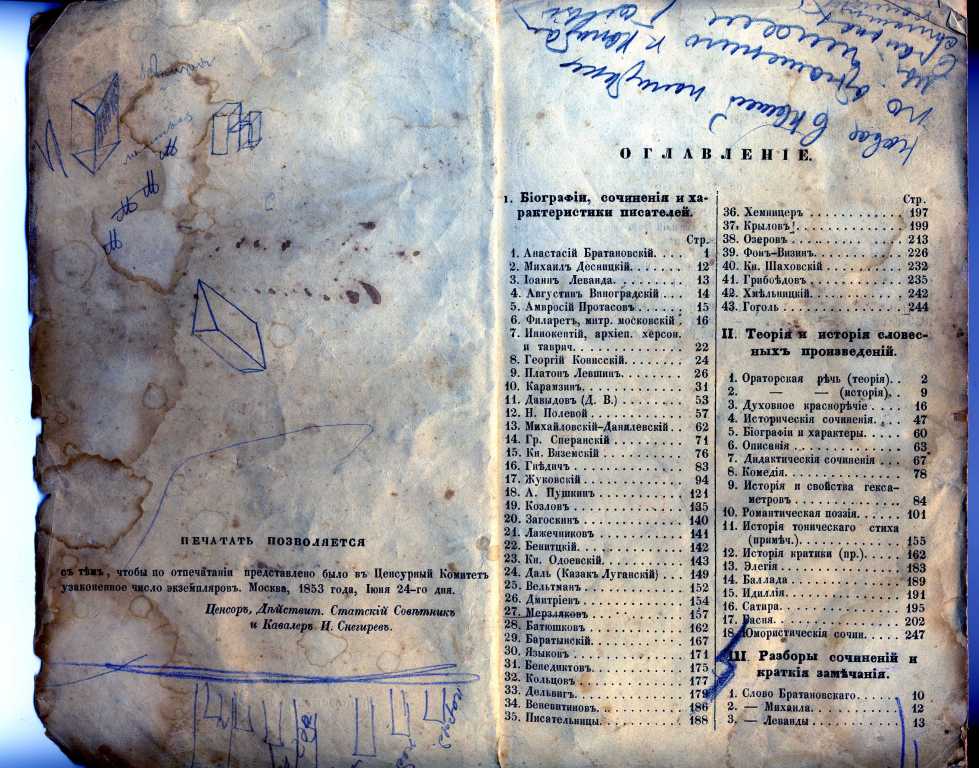 ПЕЧАТАТЬ ПОЗВОЛЯЕТСЯ
съ тѣмъ, чтобы по отпечатаніи представлено было въ Ценсурный Комитетъ
узаконенное число экземпляровъ. Москва, 1853 года, Іюня 24-го дня.
Ценсоръ, Дѣйствит. Статскій Совѣтникъ
и Кавалеръ И. Снегиревъ.
ОГЛАВЛЕНІЕ.
I. Біографіи, сочиненія и ха-
рактеристики писателей.
Стр.
1. Анастасій Братановскій. . . . 1
2. Михаилъ Десницкій. . . . . . 12
3. Іоаннъ Леванда. . . . . . . . 13
4. Августинъ Виноградскій . . . 14
5. Амвросій Протасовъ . . . . . 15
6. Филаретъ, митр. московскій . 16
7. Иннокентій, архіеп. херсон.
и таврич. . . . . . . . . . . 22
8. Георгій Конисскій. . . . . . 24
9. Платонъ Левшинъ. . . . . . . 26
10. Карамзинъ. . . . . . . . . . 31
11. Давыдовъ (Д. В.) . . . . . . 53
12. Н. Полевой . . . . . . . . . 57
13. Михайловскій-Данилевскій . . 62
14. Гр. Сперанскій . . . . . . . 71
15. Кн. Вяземскій . . . . . . . 76
16. Гнѣдичъ . . . . . . . . . . 83
17. Жуковскій . . . . . . . . . 94
18. А. Пушкинъ . . . . . . . . . 121
19. Козловъ . . . . . . . . . . 135
20. Загоскинъ . . . . . . . . . 140
21. Лажечниковъ . . . . . . . . 141
22. Бенитцкій. . . . . . . . . . 142
23. Кн. Одоевскій. . . . . . . . 143
24. Даль (Казакъ Луганскій) . . . 149
25. Вельтманъ . . . . . . . . . 152
26. Дмитріевъ . . . . . . . . . 154
27. Мерзляковъ . . . . . . . . . 157
28. Батюшковъ . . . . . . . . . 162
29. Баратынскій. . . . . . . . . 167
30. Языковъ . . . . . . . . . . 171
31. Бенедиктовъ. . . . . . . . . 175
32. Кольцовъ . . . . . . . . . . 177
33. Дельвигъ. . . . . . . . . . 179
34. Веневитиновъ. . . . . . . . 186
35. Писательницы. . . . . . . . 188
Стр.
36. Хемницеръ . . . . . . . . . 197
37. Крыловъ . . . . . . . . . . 199
38. Озеровъ . . . . . . . . . . 213
39. Фонъ-Визинъ. . . . . . . . . 226
40. Кн. Шаховскій . . . . . . . 232
41. Грибоѣдовъ . . . . . . . . . 235
42. Хмѣльницкій. . . . . . . . . 242
43. Гоголь . . . . . . . . . . . 244
II. Теорія и исторія словес-
ныхъ произведеній.
1. Ораторская рѣчь (теорія). . 2
2. — — (исторія). . 9
3. Духовное краснорѣчіе . . . . 16
4. Историческія сочиненія. . . . 47
5. Біографіи и характеры. . . . 60
6. Описанія . . . . . . . . . . 63
7. Дидактическія сочиненія . . . 67
8. Комедія. . . . . . . . . . . 78
9. Исторія и свойства гекса-
метровъ . . . . . . . . . . . 84
10. Романтическая поэзія. . . . . 101
11. Исторія тоническаго стиха
(примѣч.). . . . . . . . . . 155
12. Исторія критики (пр.). . . . 162
13. Элегія . . . . . . . . . . . 183
14. Баллада . . . . . . . . . . 189
15. Идиллія. . . . . . . . . . . 191
16. Сатира. . . . . . . . . . . 195
17. Басня. . . . . . . . . . . . 202
18. Юмористическія сочин. . . . . 247
III. Разборы сочиненій и
краткія замѣчанія.
1. Слово Братановскаго. . . . . 10
2. — Михаила. . . . . . . . . 12
3. — Леванды . . . . . . . . . 13